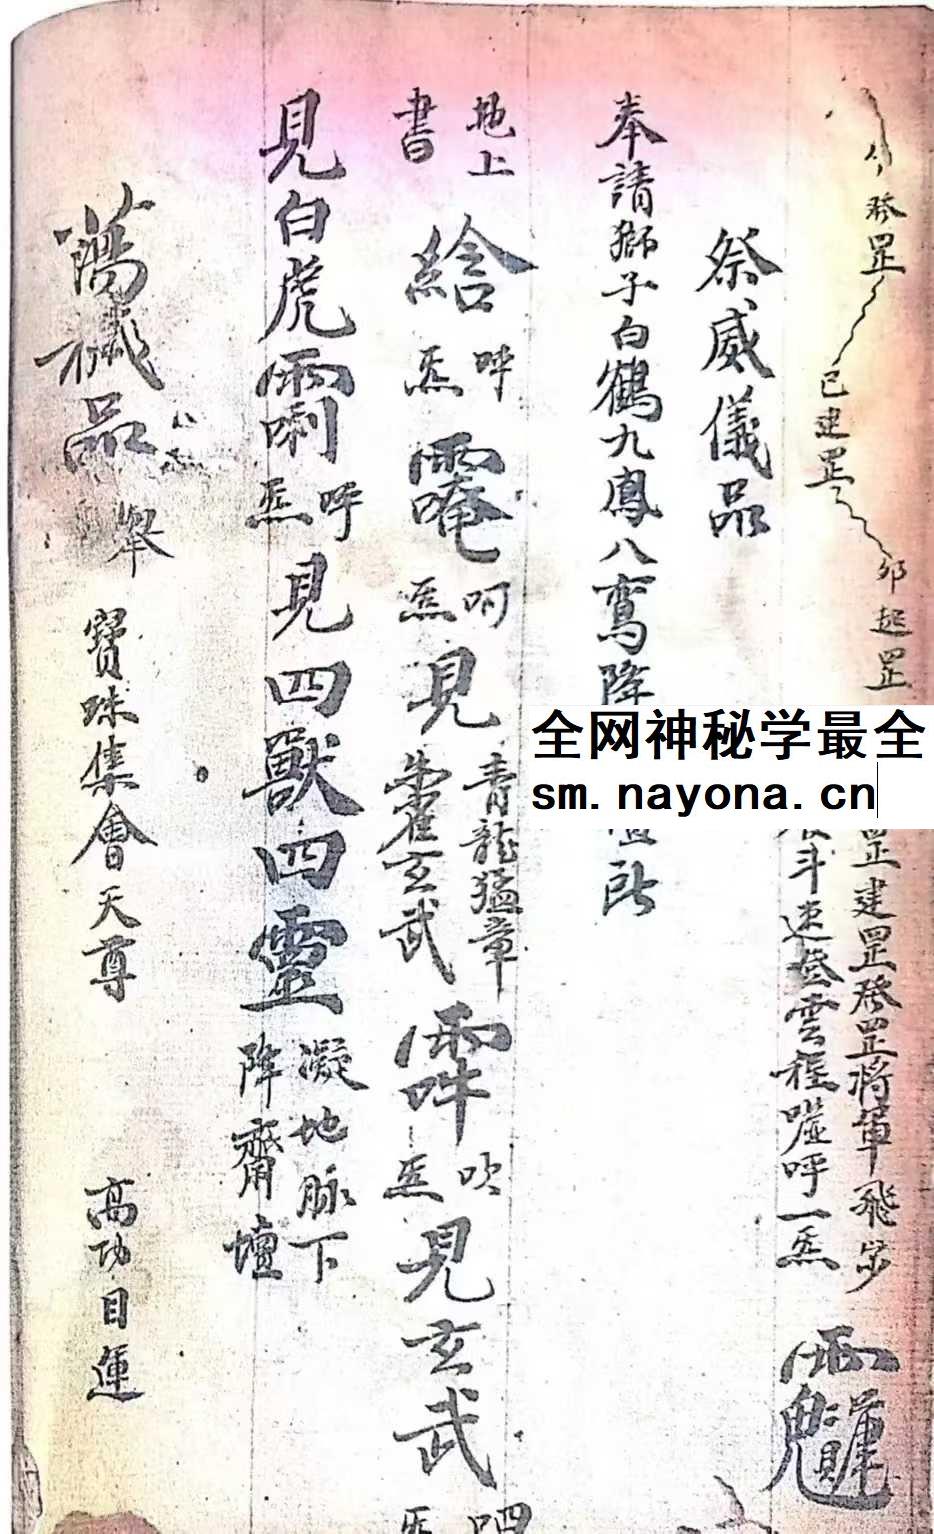 發罡
已建罡
卯起罡
罡建罡發罡將軍飛步
斗速登雲程噓呼一炁
祭威儀品
奉請獅子白鶴九鳳八鸞降
所
地上書
呼炁
呵炁
見
青龍猛章
朱雀玄武
吹炁
見玄武
呬炁
見白虎
呼炁
見四獸四靈
凝地脉下
降齋壇
蕩穢品
舉
寶珠集會天尊
高功目運
全网神秘学最全
sm.nayona.cn